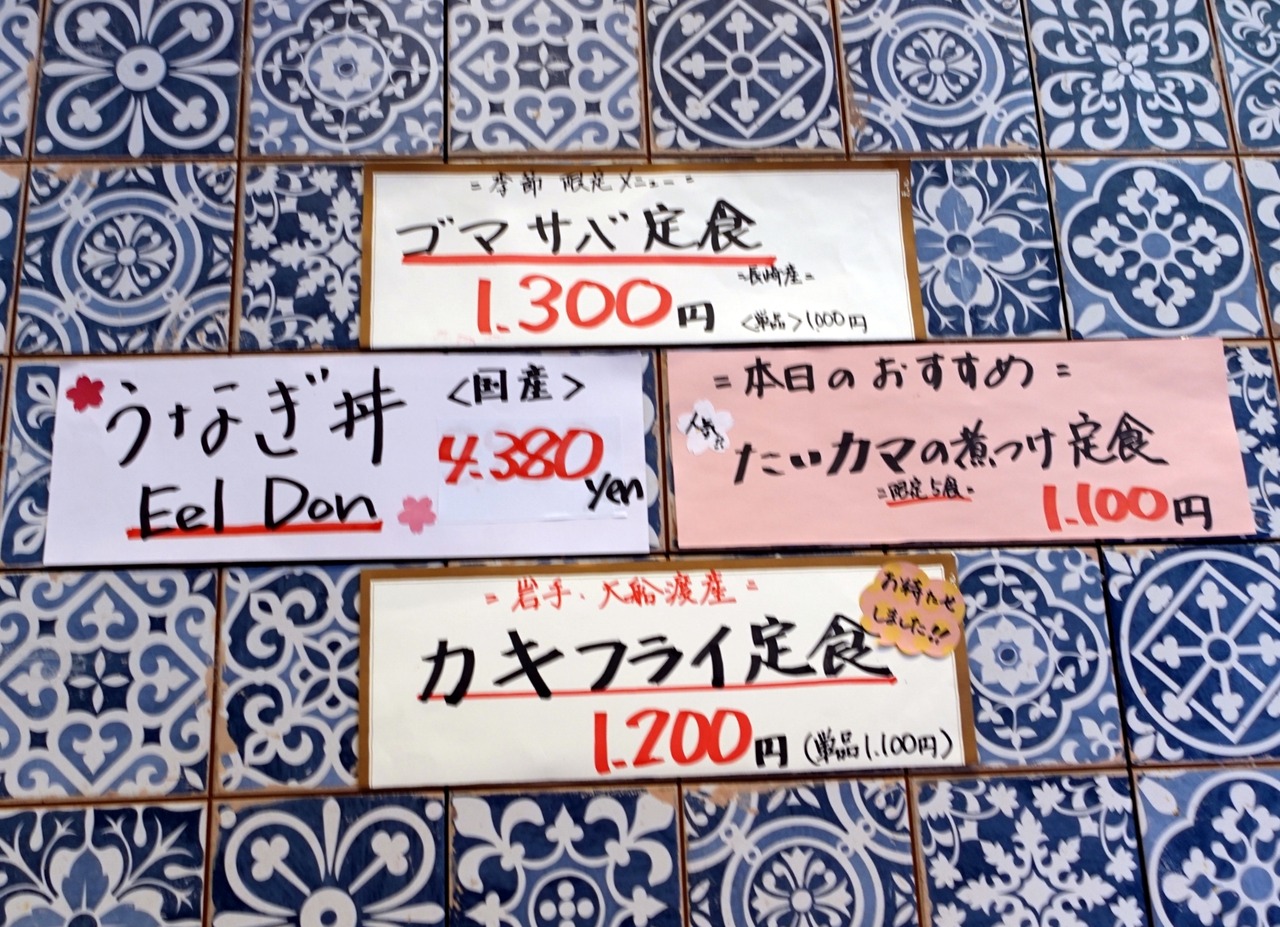 =季節 限定メニュー=
ゴマサバ定食
=長崎産=
1.300円
<単品>1000円
うなぎ丼
<国産>
4.380
yen
Eel Don
=本日のおすすめ=
人気
たいカマの煮つけ定食
=限定5食=
1.100円
=岩手、大船渡産=
お待たせ
しました!!
カキフライ定食
1.200円(単品1.100円)